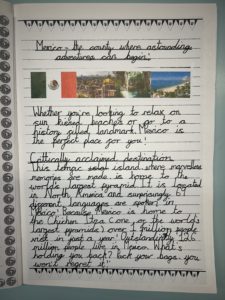 Mexico - the county where astounding
adventures can begin!
Whether you're looking to relax on
sun kissed beaches or go to a
history filled landmark Mexico is
the perfect place for you!
Critically acclaimed destination
This tempic island where
memories are made is home to the
world's largest pyramid. It is located
in North America and surprisingly 67
different languages are spoken in
Mexico! Because Mexico is home to
the Chichen Itza (one of the world's
largest pyramids) over 1 million people
visit in just a year! Outstandingly 126
million people live in Mexico. What's
holding you back? Pack your bags you
won't regret it!